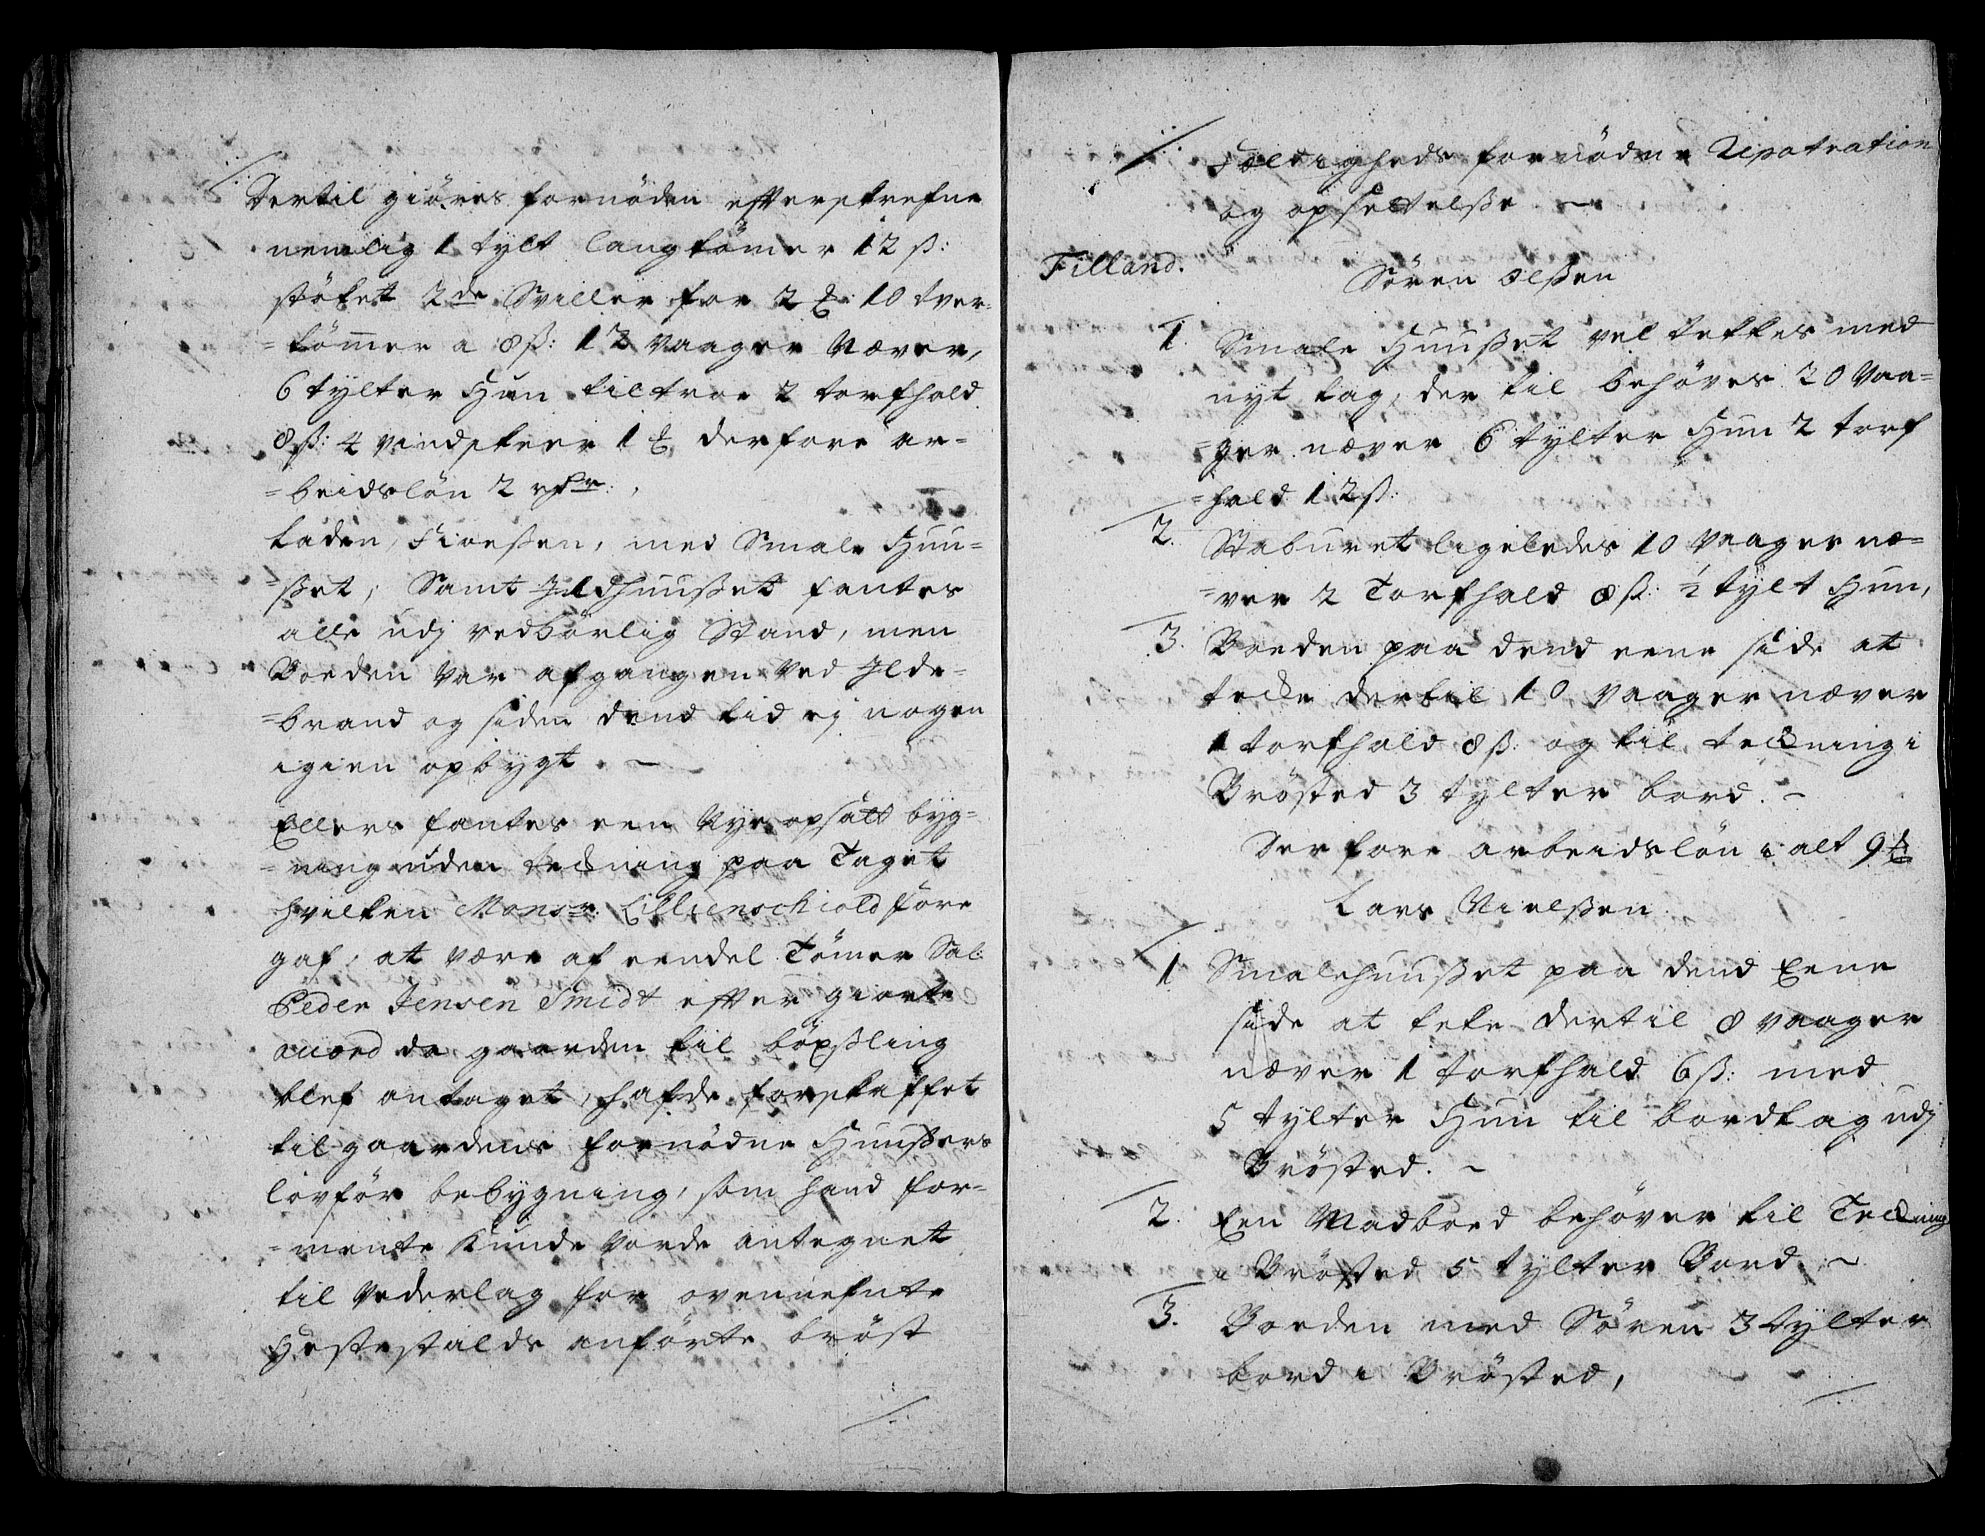 Dertil giöres fornöden efterskrefne
nemlig 1 tylt langtömer 12 ß:
støket 2de Sviller for 2 ₰: 10 tver-
=tömmer a 8ß: 12 vaager Næver,
6 tylter Hun til troe 2 torfhold
8ß: 4 vindskeer 1 ₰ derfore ar=
=beidslön 2 rdr:,
Laden, Floeßen, med Smale Huu=
=ßet, Samt Jldhuußet fantes
alle udj vedbörlig Stand, men
Boeden var afgangen ved Jlde=
=brand og siden dend tid ej nogen
igien opbygt. ~
Ellers fantes een Nye opsatt byg=
=ning uden teckning paa Taget
hvilken Monsr. Lillienschiold fore
gaf, at være af eendel Tömer Sal:
Peder Jensen Smidt efter giorte
accord da gaarden til böxßling
blef antaget, hafde forskaffet
til gaardens fornödne Huußers
lovför bebygning, som hand for=
=mente kunde vorde antegnet
til Vederlag for ovennefnte
Hestestalds anförte bröst
./.
./. Fældigheds fornödne Reparation
og opsettelße ~
Filland.
Sören Olßen
1. Smale Huußet vel tekkes med
nyt tag, der til behöves 20 Vaa=
=ger næver 6 tylter Hun 2 torf
=hald 12ß:
2. Staburet ligeledes 10 Vaager næ=
=ver 2 Torfhald 8ß: ½ tylt Hun,
3. Boeden paa dend eene side at
tecke dertil 10 vaager næver
1 torfhald 8ß: og til teckning i
Brösted 3 tylter bord. ~
Derfore arbeidslön i alt 9 ₰
Lars Nielßen
1 Smalehuußet paa dend Eene
side at teke dertil 8 vaager
næver 1 torfhald 6ß: med
5 tylter Hun til bordtag udj
Brösted. ~
2. Een Madboed behöver til Teckning
i Brösted 5 tylter Bord. ~
3. Boeden med Sören 3 tylter
bord i Brösted,
./.